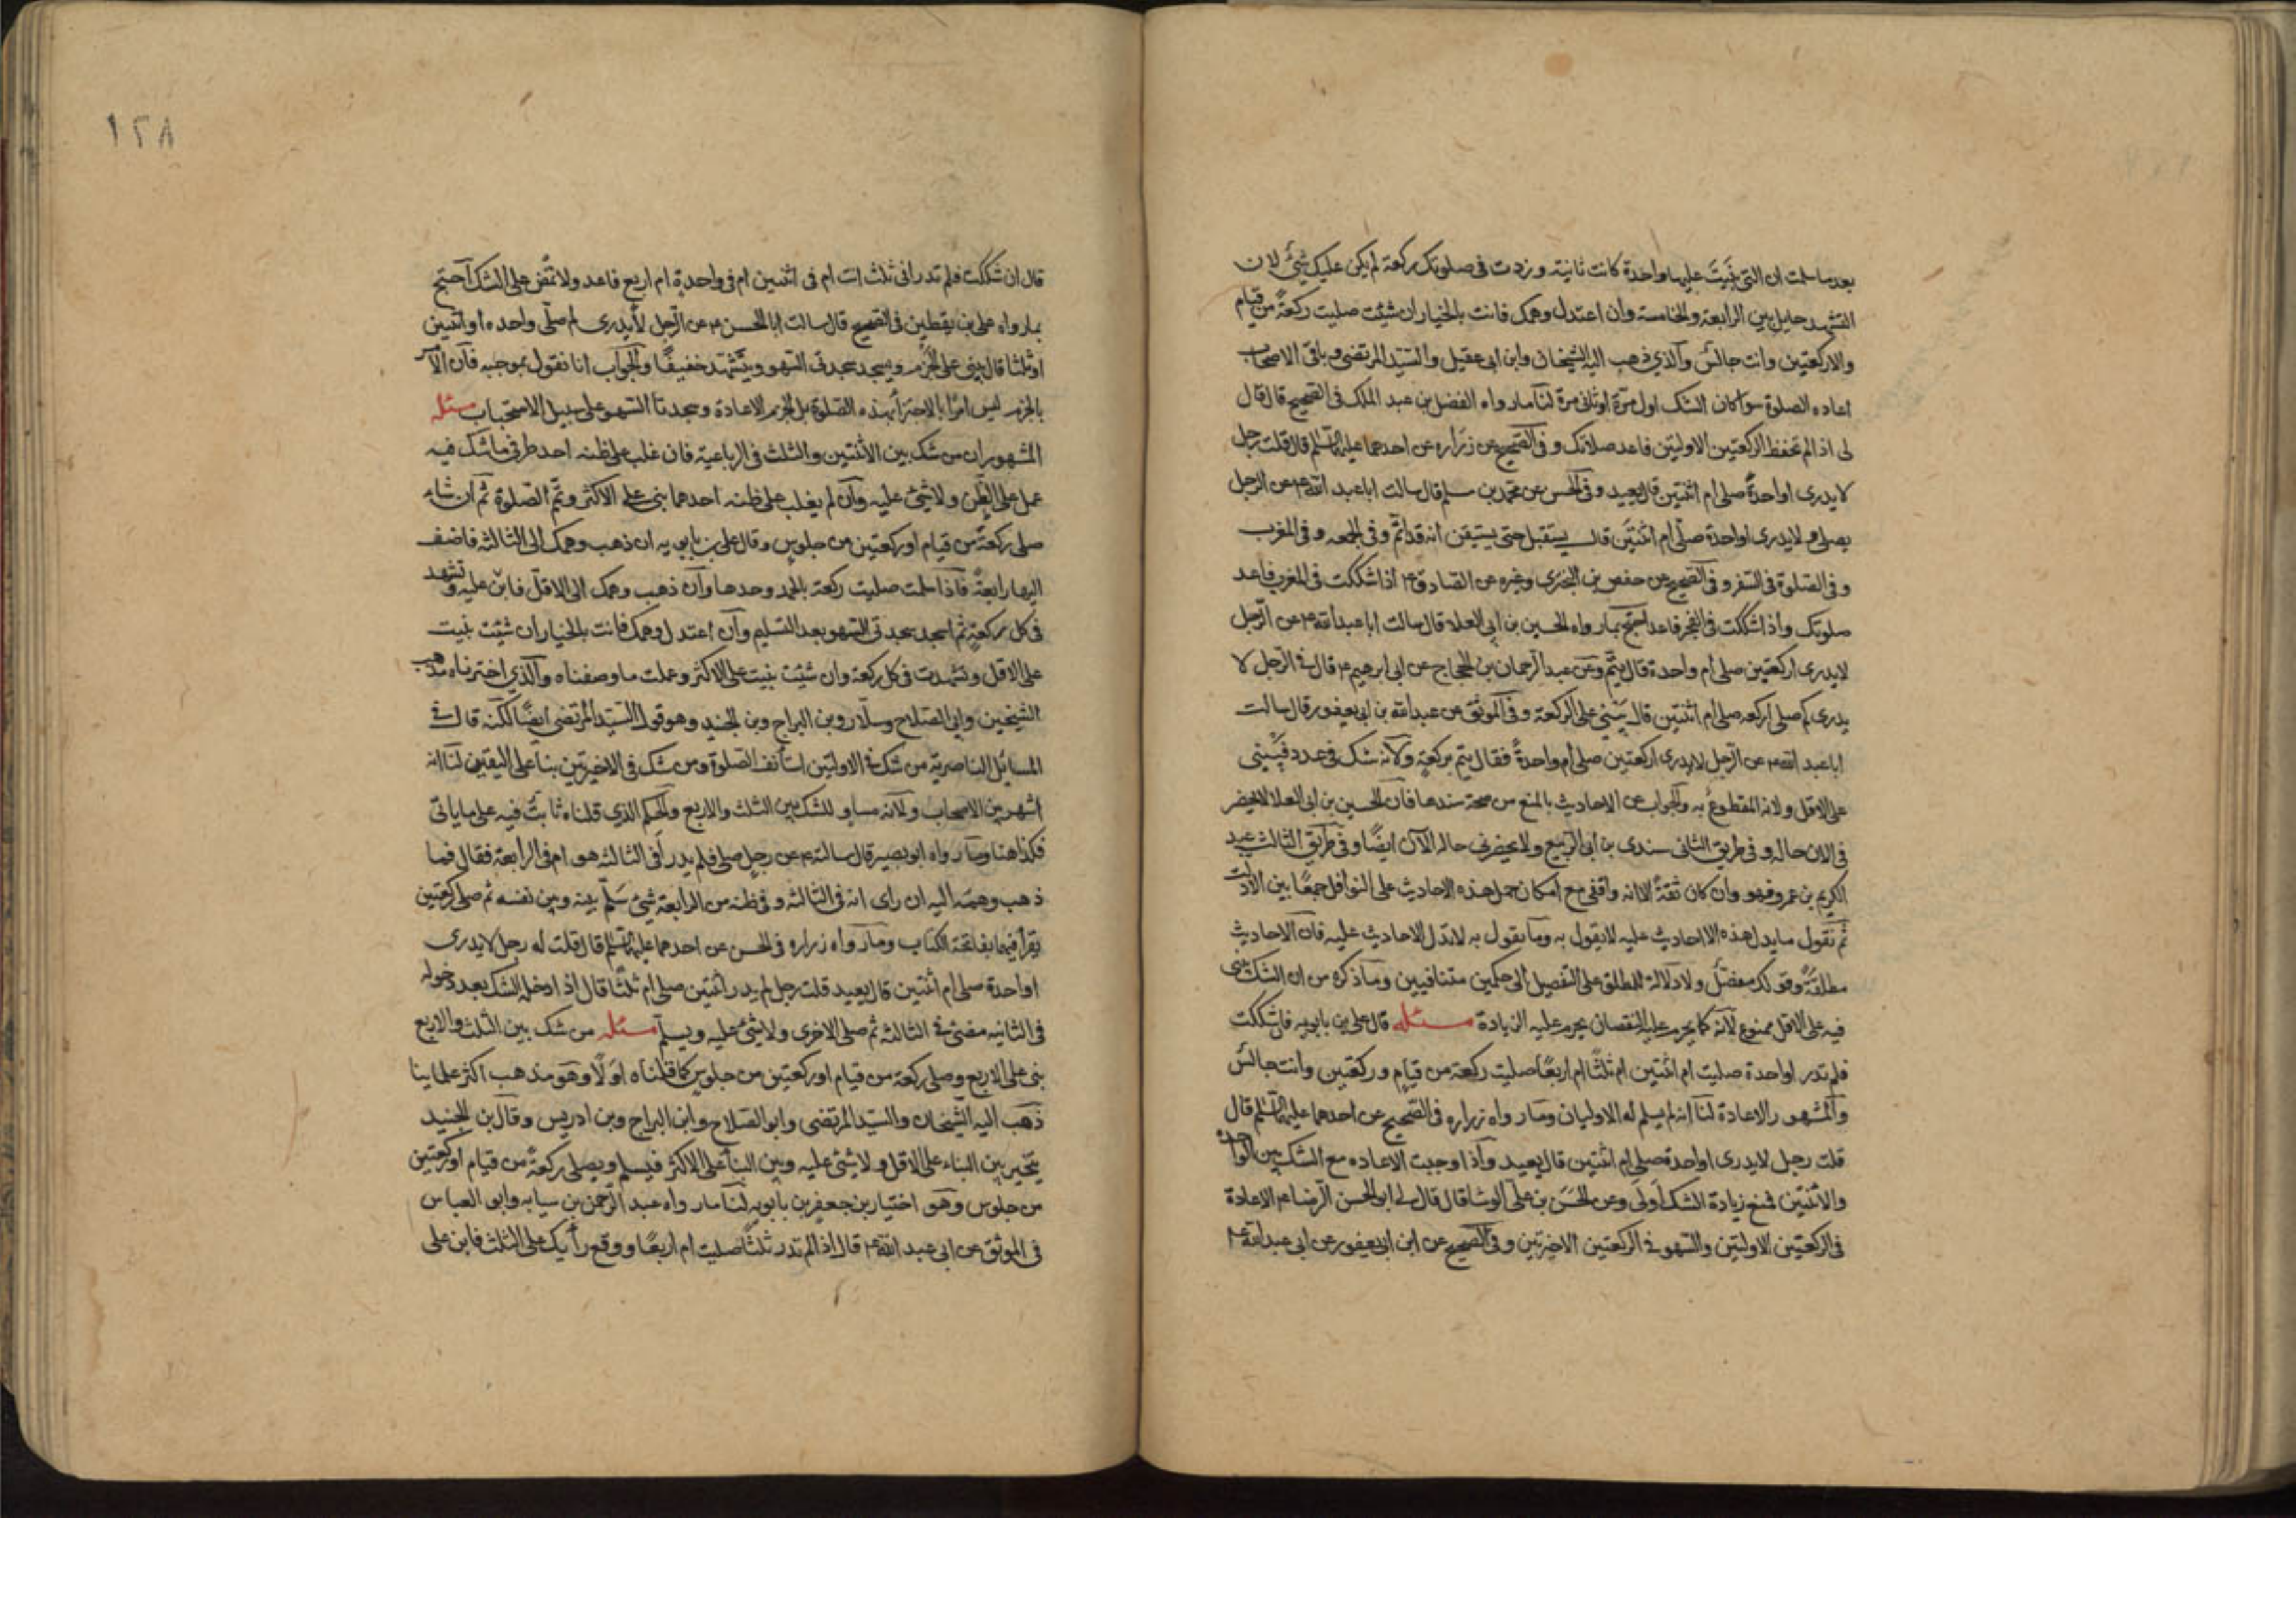 بعد ما سلمت ان التى بنيت عليها واحدة كانت ثانية وزدت فى صلوتك ركعة لم يكن عليك شئ لان
التشهد حايل بين الرابعة والخامسة وان اعتدل وهمك فانت بالخيار ان شئت صليت ركعة من قيام
والا ركعتين وانت جالس والذي ذهب اليه الشيخان وابن ابى عقيل والسيد المرتضى وباقى الاصحاب
اعاده الصلوة سوا كان الشك اول مرة او ثانى مرة لنا ما رواه الفضل بن عبد الملك فى الصحيح قال قال
لى اذا لم تحفظ الركعتين الاولتين فاعد صلاتك و فى الصحيح عن زراره عن احدهما عليهما السلم قال قلت رجل
لا يدرى اواحدة صلى ام اثنتين قال يعيد و فى الحسن عن محمد بن مسلم قال سالت ابا عبد الله ع عن الرجل
يصلى و لا يدرى اواحدة صلى ام اثنتين قال يستقبل حتى يستيقن انه قد اتم و فى الجمعه و فى المغرب
و فى الصلوة فى السفر و فى الصحيح عن حفص بن البخترى وغيره عن الصادق ع اذا شككت فى المغرب فاعد
صلوتك واذا شككت فى الفجر فاعد احتج بما رواه الحسين بن ابى العلا قال سالت ابا عبد الله ع عن الرجل
لا يدرى اركعتين صلى ام واحدة قال يتم وعن عبد الرحمان بن الحجاج عن ابى ابرهيم ع قال فى الرجل لا
يدرى كم صلى اركعه صلى ام اثنتين قال يبنى على الركعة و فى الموثق عن عبد الله بن ابى يعفور قال سالت
ابا عبد الله ع عن الرجل لا يدرى اركعتين صلى ام واحدة فقال يتم بركعة ولانه شك فى عدد فيبنى
على الاقل ولانه المقطوع به والجواب عن الاحاديث بالمنع من صحة سندها فان الحسين بن ابى العلا لا يحضر
فى الان حاله و فى طريق الثانى سندى بن الربيع ولا يحضرنى حاله الآن ايضا و فى طريق الثالث عبد
الكريم بن عمرو فهو وان كان ثقة الا انه واقفى مع امكان حمل هذه الاحاديث على النوافل جمعا بين الادلة
ثم نقول ما يدل هذه الاحاديث عليه لا يقول به وما يقول به لا تدل الاحاديث عليه فان الاحاديث
مطلقة وقولك مفصل ولا دلالة للمطلق على التفصيل الى حكمين متنافيين وما ذكره من ان الشك يبنى
فيه على الاقل ممنوع لانه كما يحرم عليه النقصان يحرم عليه الزيادة مسئله قال على بن بابويه فان شككت
فلم تدر اواحدة صليت ام اثنتين ام ثلثا ام اربعا صليت ركعة من قيام و ركعتين وانت جالس
والمشهور الاعادة لنا انه لم يسلم له الاوليان وما رواه زراره فى الصحيح عن احدهما عليهما السلم قال
قلت رجل لا يدرى اواحدة صلى ام اثنتين قال يعيد واذا وجبت الاعاده مع الشك بين الواحدة
والاثنتين فمع زيادة الشك اولى وعن الحسن بن على الوشا قال قال لى ابو الحسن الرضا ع الاعادة
فى الركعتين الاولتين والسهو فى الركعتين الاخيرتين و فى الصحيح عن ابن ابى يعفور عن ابى عبد الله ع
١٢٨
قال ان شككت فلم تدر افى ثلث انت ام فى اثنتين ام فى واحدة ام اربع فاعد ولا تمض على الشك احتج
بما رواه على بن يقطين فى الصحيح قال سالت ابا الحسن ع عن الرجل لا يدرى كم صلى واحده او اثنتين
او ثلثا قال يبنى على الجزم ويسجد سجدتى السهو ويتشهد خفيفا والجواب انا نقول بموجبه فان الامر
بالجزم ليس امرا بالاجتزا بهذه الصلوة بل الجزم الاعادة و سجدتا السهو على سبيل الاستحباب مسئله
المشهور ان من شك بين الاثنتين والثلث فى الرباعية فان غلب على ظنه احد طرفى ما شك فيه
عمل على الظن ولا شئ عليه وان لم يغلب على ظنه احدهما بنى على الاكثر وتم الصلوة ثم ان شاء
صلى ركعة من قيام او ركعتين من جلوس وقال على بن بابويه ان ذهب وهمك الى الثالثه فاضف
اليها رابعة فاذا سلمت صليت ركعة بالحمد وحدها وان ذهب وهمك الى الاقل فابن عليه وتشهد
فى كل ركعة ثم اسجد سجدتى السهو بعد التسليم وان اعتدل وهمك فانت بالخيار ان شئت بنيت
على الاقل وتشهدت فى كل ركعة وان شئت بنيت على الاكثر وعملت ما وصفناه والذي اخترناه مذهب
الشيخين وابى الصلاح وسلار وبن البراج وبن الجنيد وهو قول السيد المرتضى ايضا لكنه قال فى
المسائل الناصرية من شك فى الاولتين استأنف الصلوة ومن شك فى الاخيرتين بنا على اليقين لنا انه
اشهر بين الاصحاب ولانه مساو للشك بين الثلث والاربع والحكم الذي قلناه ثابت فيه على ما ياتى
فكذا هنا وما رواه ابو بصير قال سالته ع عن رجل صلى فلم يدر افى الثالثه هو ام فى الرابعة فقال فما
ذهب وهمه اليه ان راى انه فى الثالثه و فى ظنه من الرابعة شئ سلم بينه وبين نفسه ثم صلى ركعتين
يقرا فيهما بفاتحة الكتاب وما رواه زراره فى الحسن عن احدهما عليهما السلم قال قلت له رجل لا يدرى
اواحدة صلى ام اثنتين قال يعيد قلت رجل لم يدر اثنتين صلى ام ثلثا قال اذا دخل الشك بعد دخوله
فى الثانيه مضى فى الثالثه ثم صلى الاخرى ولا شئ عليه ويسلم مسئله من شك بين الثلث والاربع
بنى على الاربع وصلى ركعة من قيام او ركعتين من جلوس كما قلناه اولا وهو مذهب اكثر علماينا
ذهب اليه الشيخان والسيد المرتضى وابو الصلاح وابن البراج وبن ادريس وقال بن الجنيد
يتخير بين البناء على الاقل ولا شئ عليه وبين البنا على الاكثر فيسلم ويصلى ركعة من قيام او ركعتين
من جلوس وهو اختيار بن جعفر بن بابويه لنا ما رواه عبد الرحمن بن سيابه وابو العباس
فى الموثق عن ابى عبد الله ع قال اذا لم تدر ثلثا صليت ام اربعا ووقع رأيك على الثلث فابن على